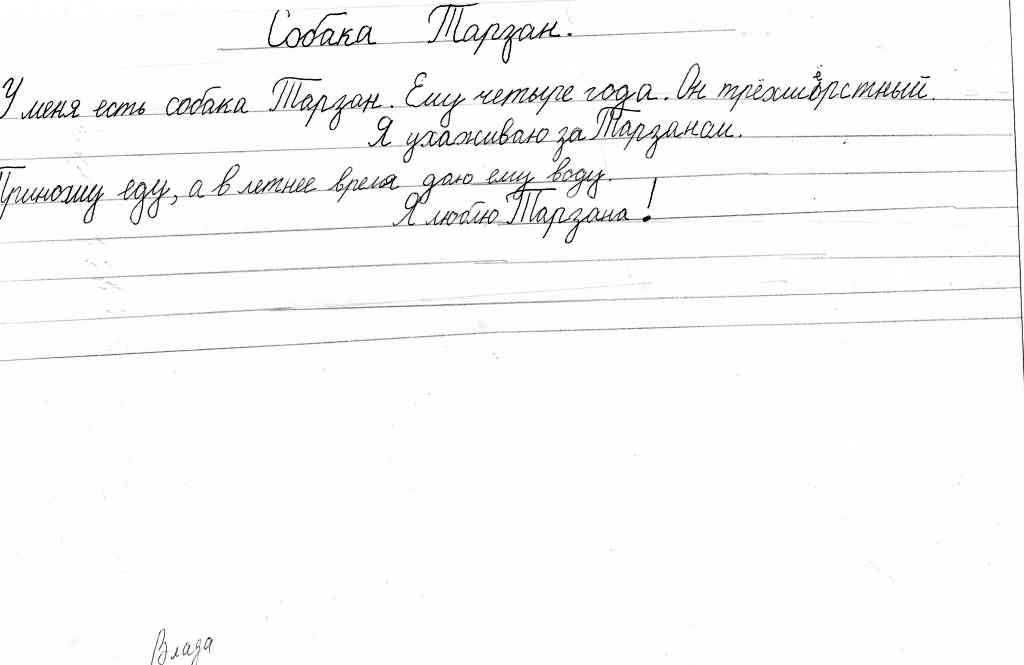 Собака Тарзан.
У меня есть собака Тарзан. Ему четыре года. Он трёхшёрстный.
Я ухаживаю за Тарзаном.
Приношу еду, а в летнее время даю ему воду.
Я люблю Тарзана!
Влада